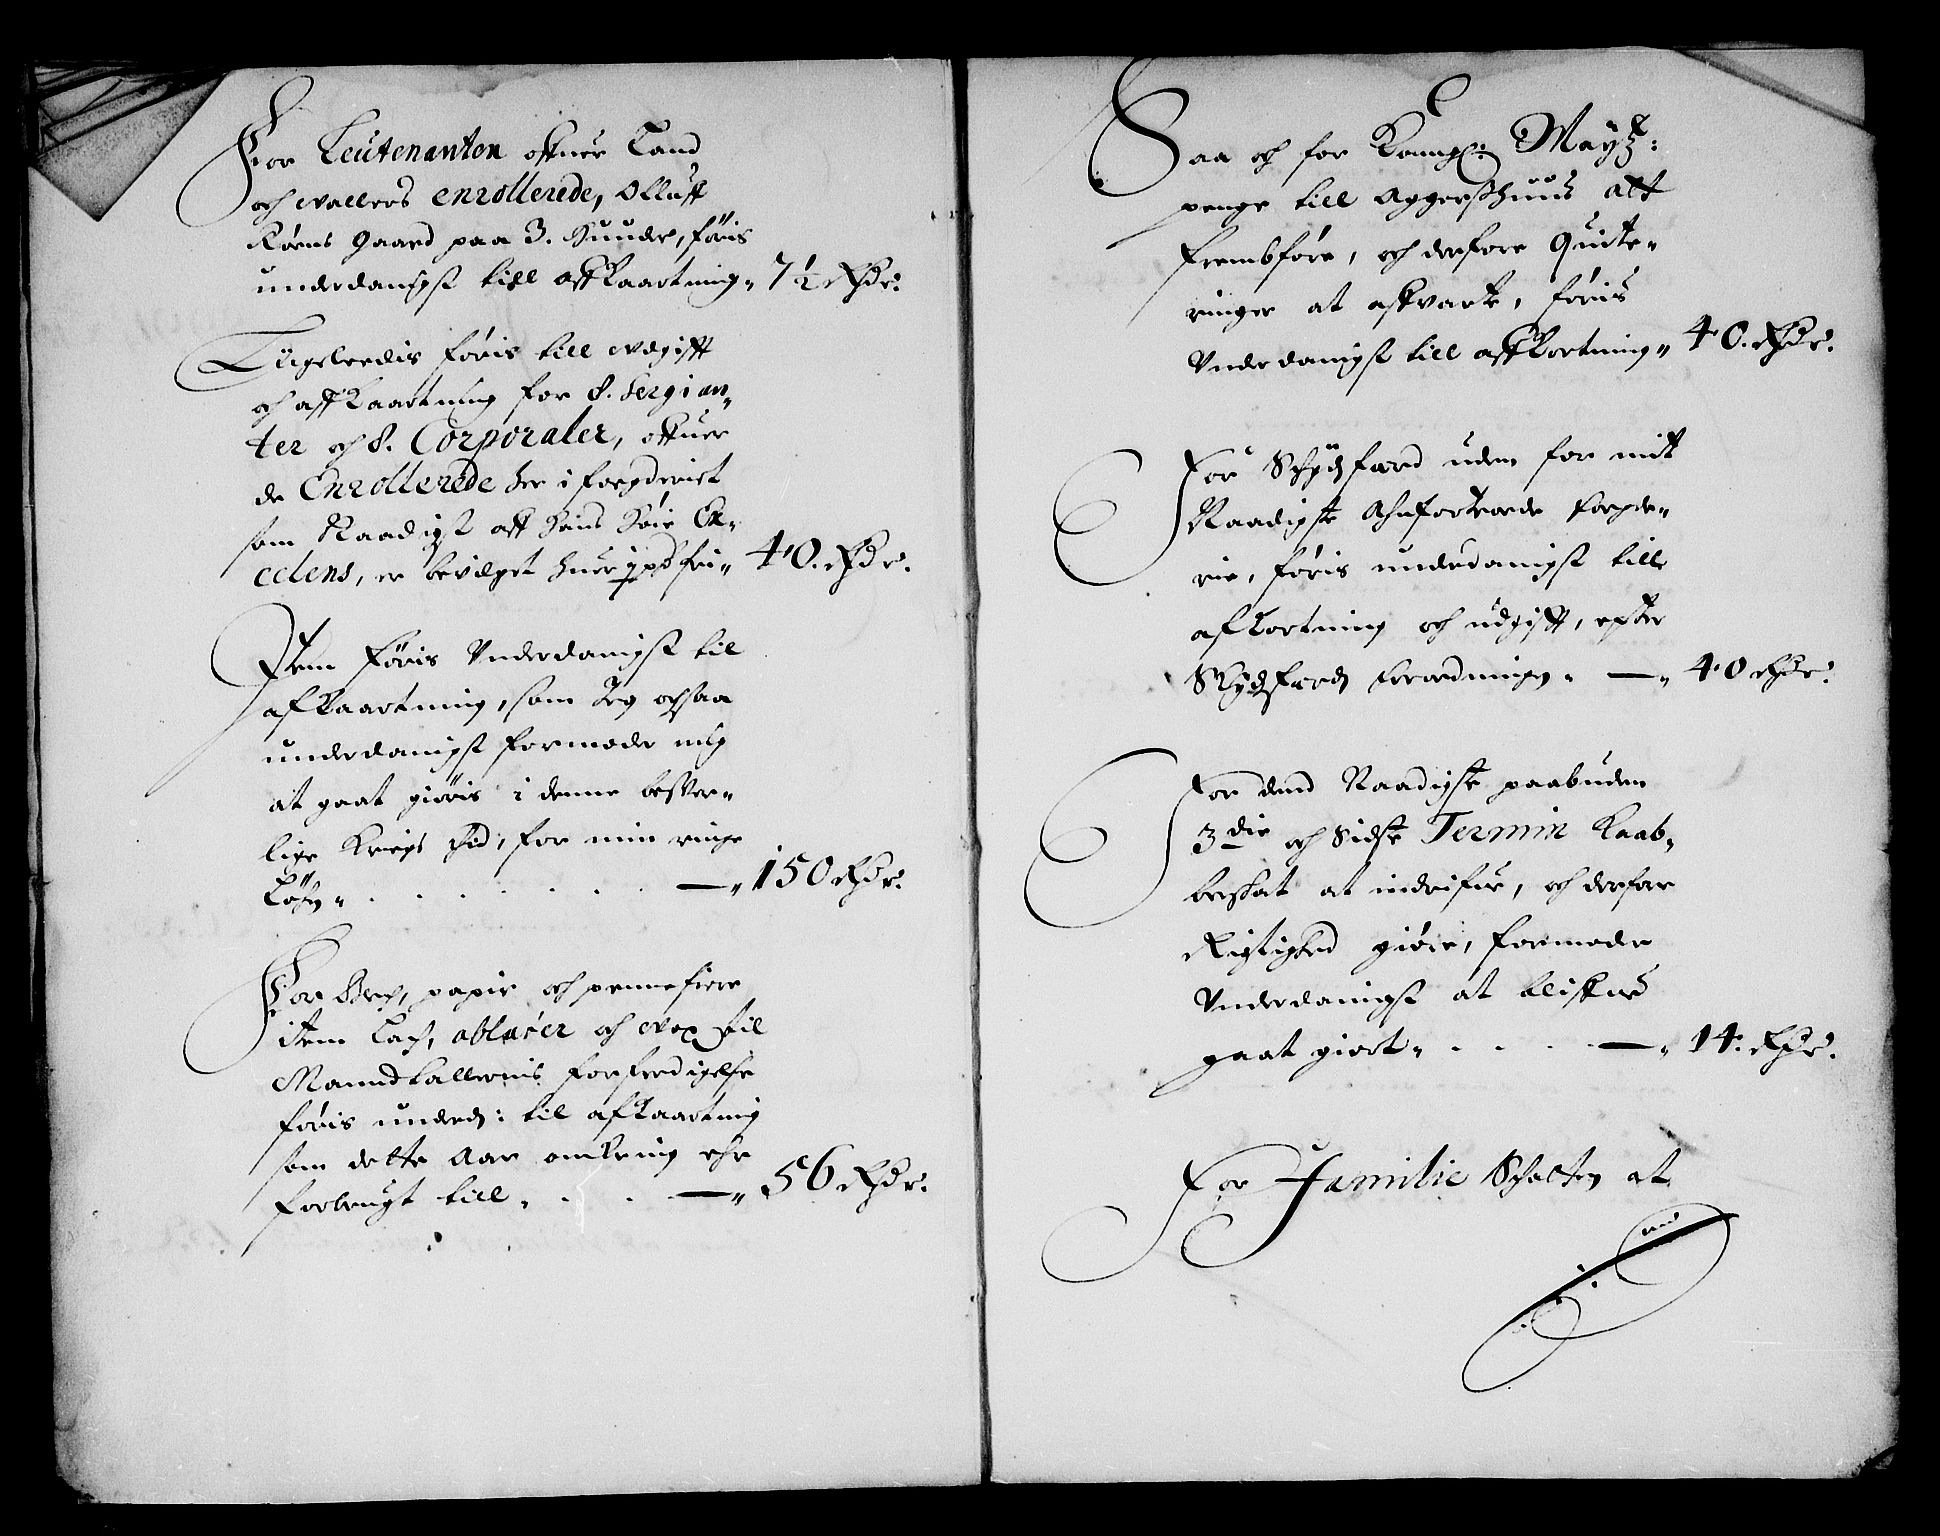 For Leutenanten offuer Land
och wallers enrollerede, Olluff
Kørens gaard paa 3. Huuder, føris
underdanigst till affkaartning, 7½ Rhdr:
Liigeleedis føris till udgifft
och affkaartning for 8. Sergian-
ter och 8. Corporaler, offuer
de Enrollerede her i fougderiet
som Naadigst aff Hans Høie Ex-
celens, er beviget huer fri, 40. Rhdr.
Item føris Underdanigst til
afkaartning, som Jeg ochsaa
underdanigst formoder mig
at gaat giøris i denne besver-
lige Kriigs tid, for min ringe
Løhn, . . . . . . — 150 Rhdr.
For Blech, papir och pennefiere
item Lach, oblater och vox til
Manndtallernis forferdigelse
føris underd: til afkaartnig
som dette Aar omkring ehr
forbrugt till, . . . — 56 Rhdr.
Saa och for Konngl: Maytz:
penge till Aggershuus att
frembføre, och derfore Quite-
ringer at affvarte, føris
Underdanigst till affkortning, 40. Rhdr.
For Schydsfærd uden for mit
Naadigste Ahnfortroede fougde-
rie, føris underdanigst till
afkortning och udgifft, efter
Skydsferds forordningen, — 40 Rhdr:
For dend Naadigste paabuden
3die och Sidste Termin Kaab-
berskat at indrifue, och derfor
Rigtighed giøre, formoder
Underdanigst at bliffue
gaat giort, . . . — 14. Rhdr.
For Familie Schatten at